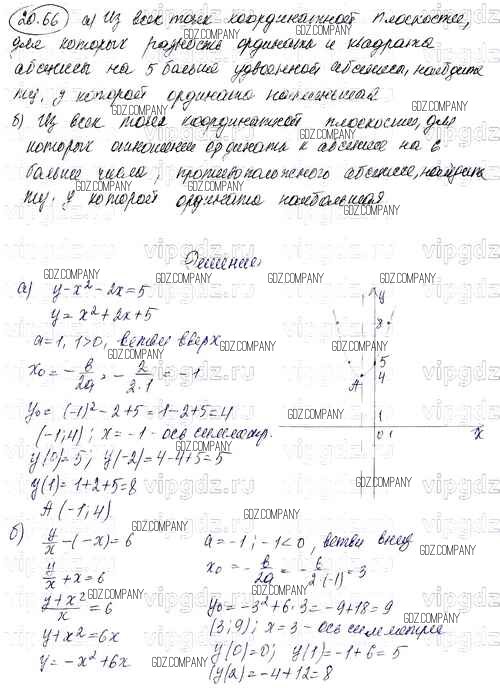 20.66 а) Из всех точек координатной плоскости,
для которых разность ординаты и квадрата
абсциссы на 5 больше удвоенной абсциссы, найдите
ту, у которой ордината наименьшая
б) Из всех точек координатной плоскости, для
которых отношение ординаты к абсциссе на 6
больше числа, противоположного абсциссе, найдите
ту, у которой ордината наибольшая
Решение:
а) y-x²-2x=5
y=x²+2x+5
a=1, 1>0, ветви вверх
x₀=-b/2a=-2/2·1=-1
y₀=(-1)²-2+5=1-2+5=4
(-1;4); x=-1-ось симметр.
y(0)=5; y(-2)=4-4+5=5
y(1)=1+2+5=8
A(-1;4)
y
8
5
A
4
1
0 1
x
б) y/x-(-x)=6
y/x+x=6
y+x²/x=6
y+x²=6x
y=-x²+6x
a=-1; -1<0, ветви вниз
x₀=-b/2a=-6/2·(-1)=3
y₀=-3²+6·3=-9+18=9
(3;9); x=3-ось симметрии
y(0)=0; y(1)=-1+6=5
y(2)=-4+12=8
GDZ.COMPANY
vipgdz.ru